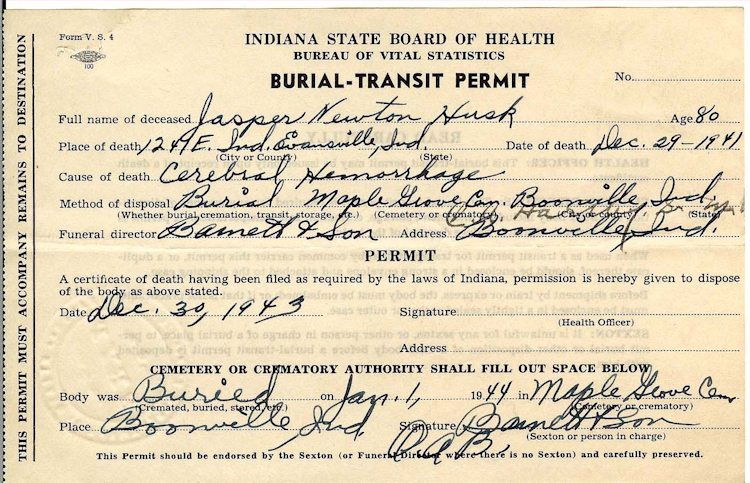 Form V. S. 4
100
INDIANA STATE BOARD OF HEALTH
BUREAU OF VITAL STATISTICS
BURIAL-TRANSIT PERMIT
No.
Full name of deceased Jasper Newton Husk Age 80
Place of death 1241 E. Ind. Evansville, Ind. Date of death Dec. 29-1941
(City or County) (State)
Cause of death Cerebral Hemorrhage
Method of disposal Burial Maple Grove Cem. Boonville, Ind.
(Whether burial, cremation, transit, storage, etc.) (Cemetery or crematory) (City or county) (State)
Funeral director Barnett & Son Address Boonville, Ind.
PERMIT
A certificate of death having been filed as required by the laws of Indiana, permission is hereby given to dispose
of the body as above stated.
Date Dec. 30, 1943 Signature
(Health Officer)
Address
CEMETERY OR CREMATORY AUTHORITY SHALL FILL OUT SPACE BELOW
Body was Buried on Jan. 1, 1944 in Maple Grove Cem
(Cremated, buried, stored, etc.) (Cemetery or crematory)
Place Boonville, Ind. Signature Barnett & Son
(Sexton or person in charge)
This Permit should be endorsed by the Sexton (or Funeral Director where there is no Sexton) and carefully preserved.
THIS PERMIT MUST ACCOMPANY REMAINS TO DESTINATION